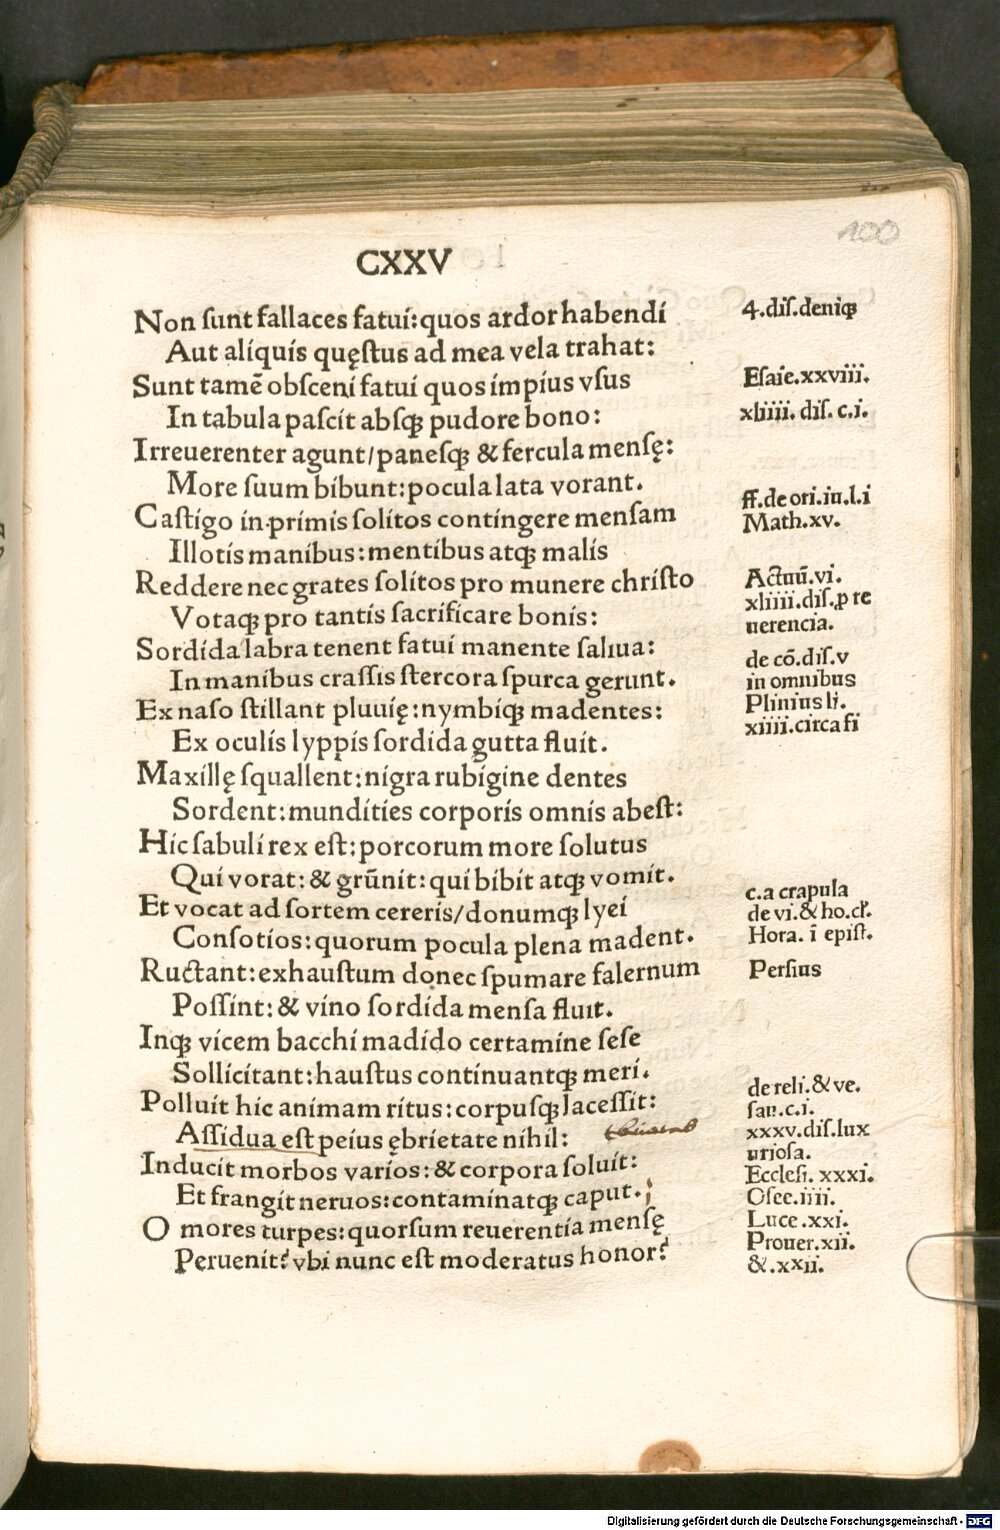 100
CXXV
Non sunt fallaces fatui: quos ardor habendi
4.dis.deniqꝫ
Aut aliquis quęstus ad mea vela trahat:
Sunt tamē obsceni fatui quos impius vsus
Esaie.xxviii.
In tabula pascit absqꝫ pudore bono:
xliiii. dis. c.i.
Irreuerenter agunt/panesqꝫ & fercula mensę:
More suum bibunt: pocula lata vorant.
ff.de ori.iu.l.i
Castigo in.primis solitos contingere mensam
Math.xv.
Illotis manibus: mentibus atqꝫ malis
Reddere nec grates solitos pro munere christo
Actuū.vi.
xliiii.dis.ꝓ re
Votaqꝫ pro tantis sacrificare bonis:
uerencia.
Sordida labra tenent fatui manente saliua:
de cō.dis.v
In manibus crassis stercora spurca gerunt.
in omnibus
Ex naso stillant pluuię: nymbiqꝫ madentes:
Plinius li.
xiiii.circa fi
Ex oculis lyppis sordida gutta fluit.
Maxillę squallent: nigra rubigine dentes
Sordent: mundities corporis omnis abest:
Hic sabuli rex est: porcorum more solutus
Qui vorat: & grūnit: qui bibit atqꝫ vomit.
c.a crapula
Et vocat ad sortem cereris/donumqꝫ lyei
de vi.& ho.cl̄.
Consotios: quorum pocula plena madent.
Hora. ī epist.
Ructant: exhaustum donec spumare falernum
Persius
Possint: & vino sordida mensa fluit.
Inqꝫ vicem bacchi madido certamine sese
Sollicitant: haustus continuantqꝫ meri.
de reli.& ve.
Polluit hic animam ritus: corpusqꝫ lacessit:
san.c.i.
Assidua est peius ębrietate nihil:
xxxv.dis.lux
uriosa.
Inducit morbos varios: & corpora soluit:
Ecclesi. xxxi.
Et frangit neruos: contaminatqꝫ caput.
Osee.iiii.
O mores turpes: quorsum reuerentia mensę
Luce.xxi.
Prouer.xii.
Peruenit? vbi nunc est moderatus honor?
&.xxii.
Digitalisierung gefördert durch die Deutsche Forschungsgemeinschaft - DFG